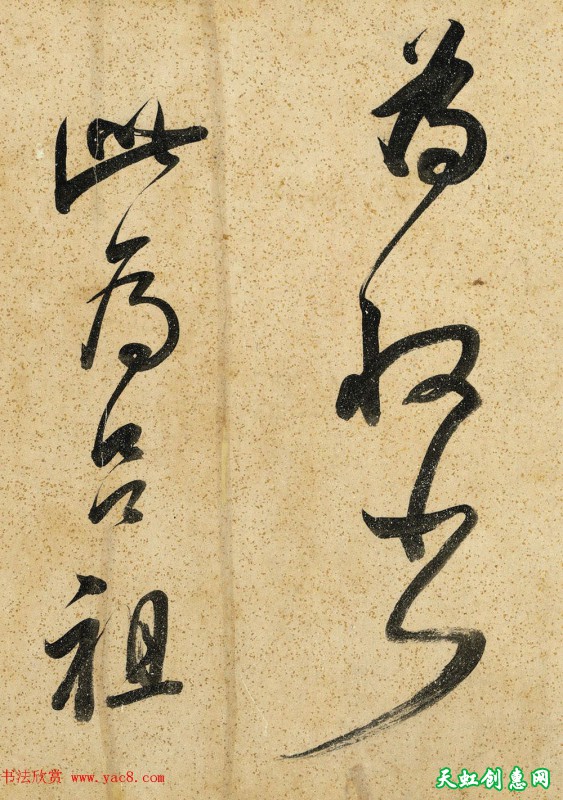 為
此為吕祖
书法欣赏 www.yac8.com
天虹创惠网